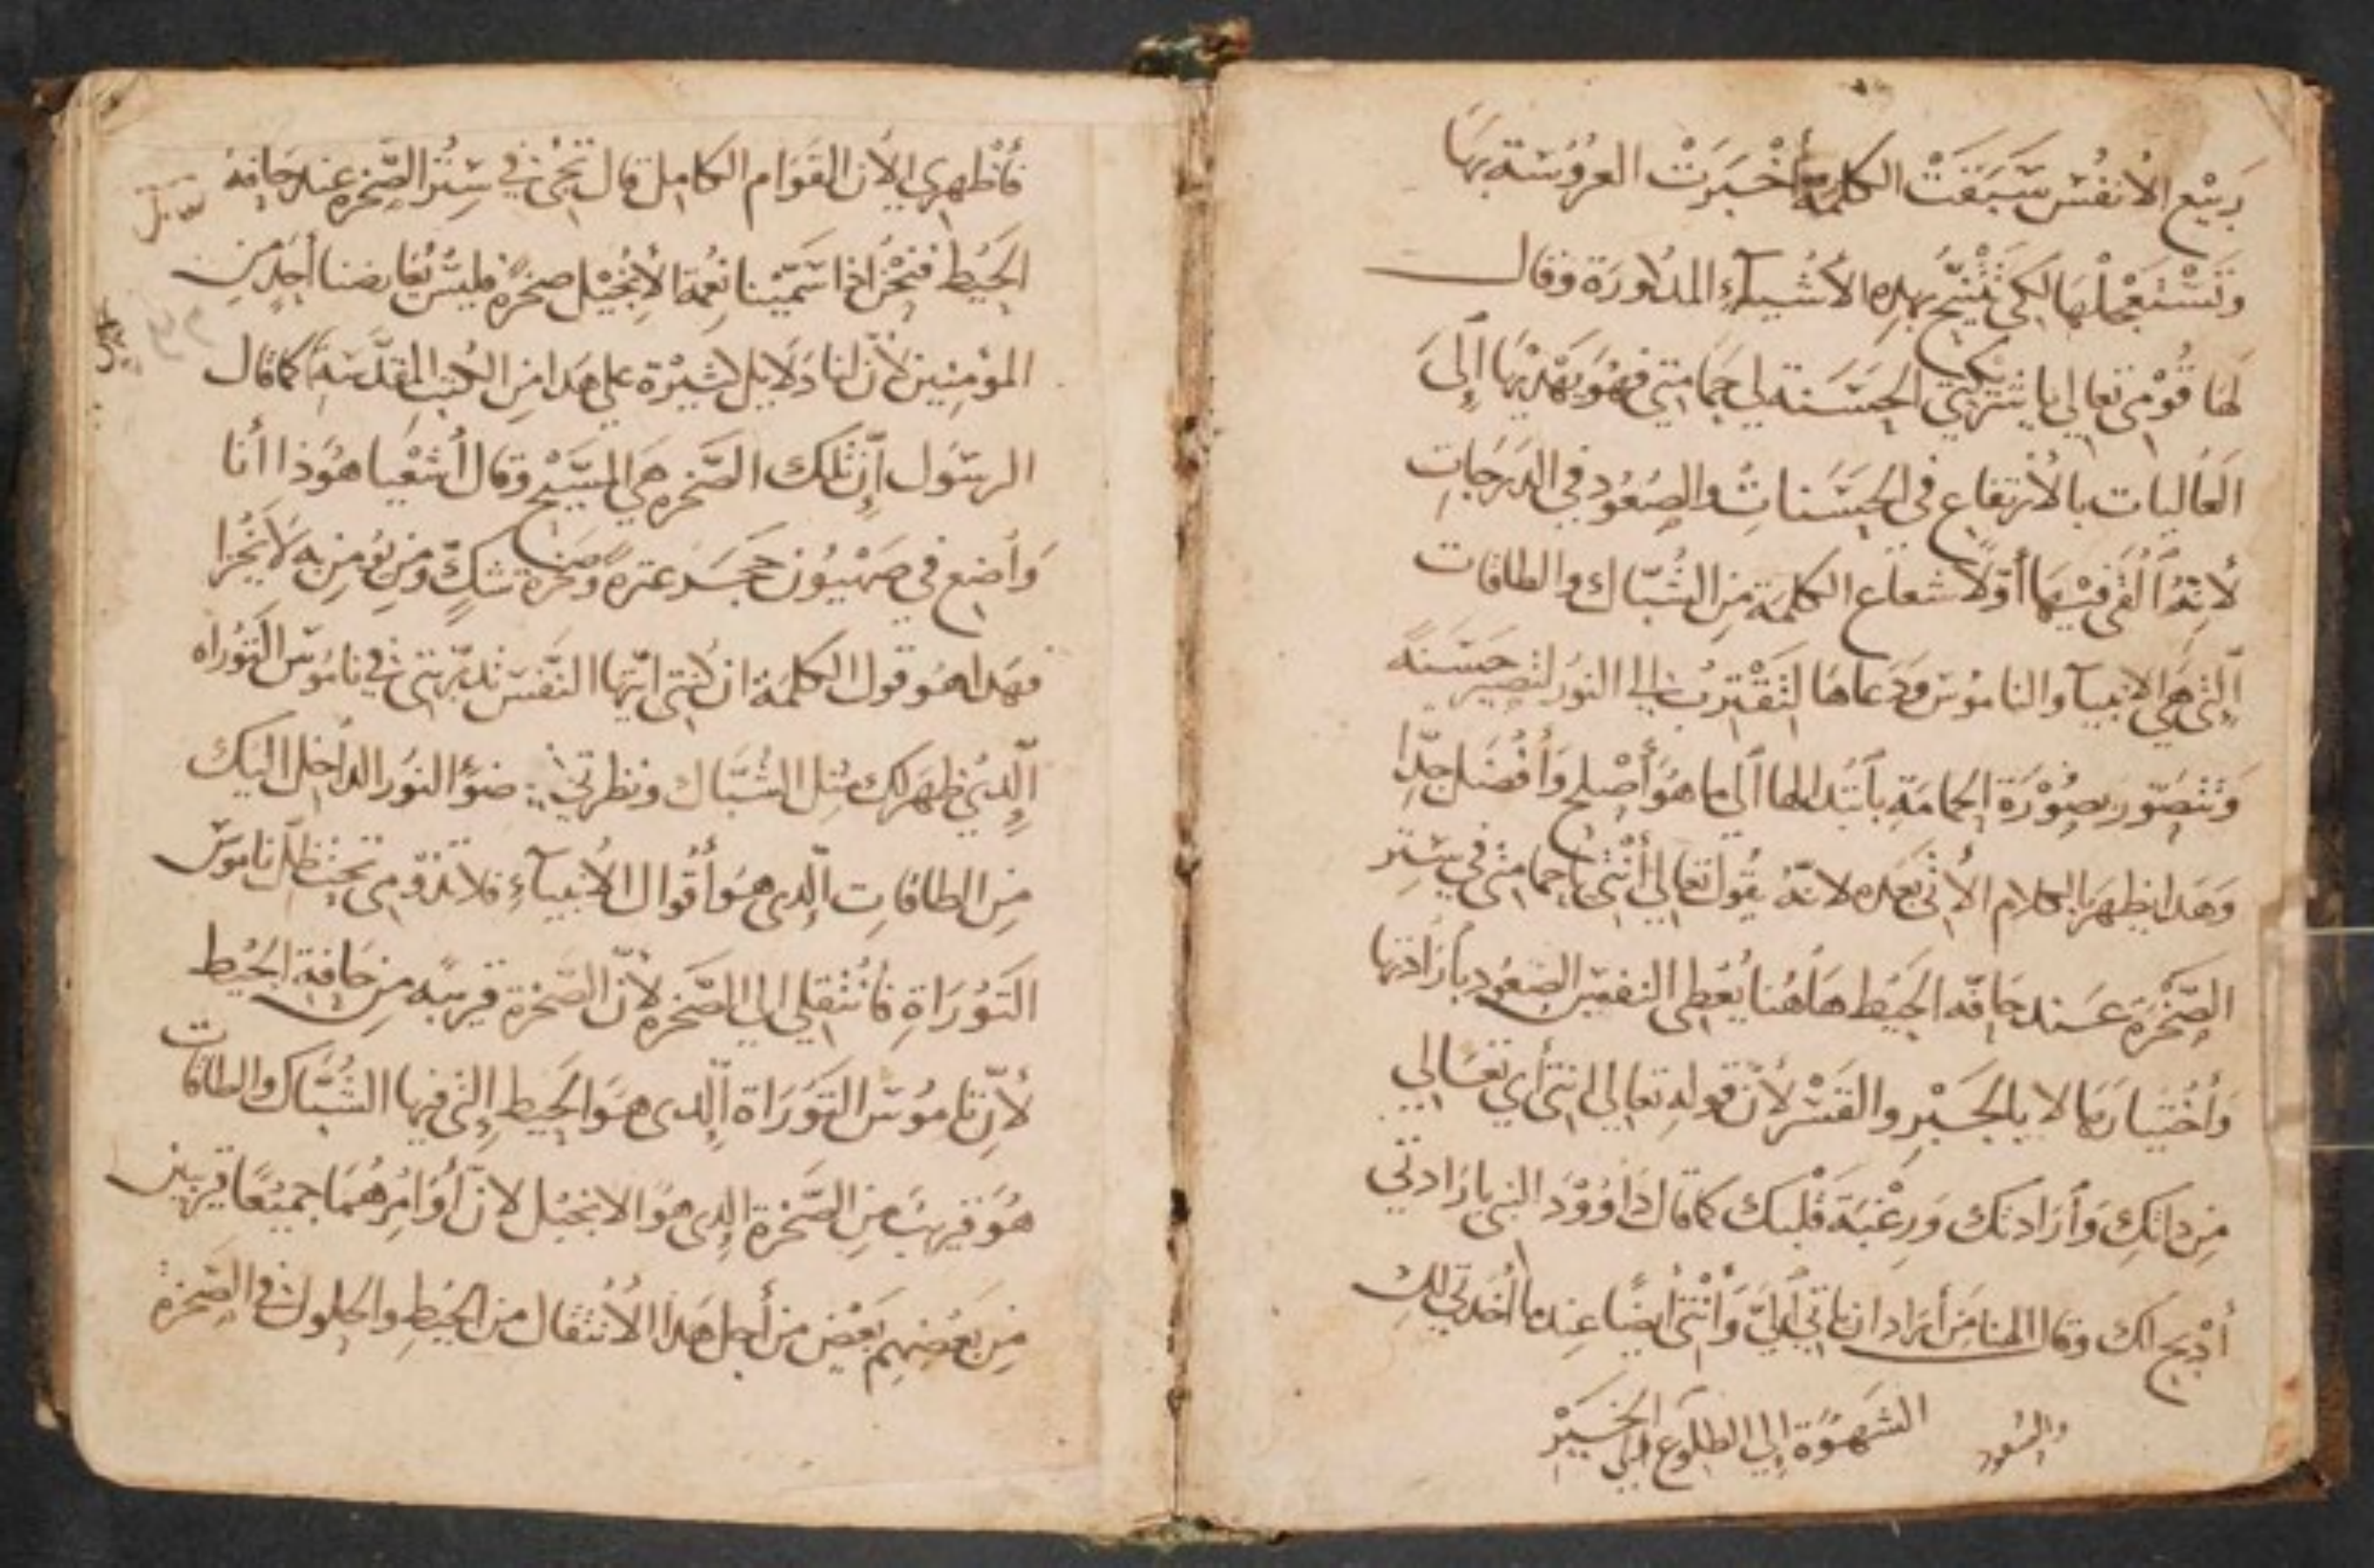 ربيع الأنفس سَبَقَتْ الكلمة أَخْبَرَتْ العروسة بها
وتَسْتَعْمِلْهَا لكي بهذه الأشياء المدكورة وقال
لها قُوْمي تعالي يا شريكتي الحَسَنة لي حمامتي فهُوَ يَهْديها إلَى
العَاليات بالأرتفاع في الحَسَنات والصعُود في الدَرَجَاتِ
لأنّهُ ألقى فيها أوّلاً شعاع الكلمة مِن الشُبّاك والطاقات
الّتي هي الانبيآ والناموس ودَعاهَا لتَقْتَرِبْ الي النور لتصير حَسَنة
وَتتصَوّر بصُوْرَة الحمامَةِ بأبتدالها ألى ما هوَ أَصْلح وَأفْضل جدّا
وَهَدا يظهر بالكلام الأتي بعده لانّهُ يقُول تعالي أَنْتي يا حمامتي في سِتر
الصَّخْرَة عَند حَافّه الحَيْط هَاهُنا يُعْطي النفس الصعُود بأرَادتها
وَأخْتيارها لا بالجَبْرِ والقَسْر لأنّ قولهِ تعالي انتي أي تَعَالي
مِن داتكِ وَأرَادتك وَرغْبَة قلْبك كما قال دَاوُوْد النبي بارَادتي
أدْبح لك وقال الهنا مَن أرَاد ان يأتي ألَيّ وَأنْتي ايضًا عِندما أخدتي لك
الشهوَة إلي الطلوع الي الخَيْر
والصعود
فأظهري الأن القوَام الكامل قال تَجْئي في سِتْر الصَّخرة عند حَافة
الحَيْط فنَحْن اذا سَمّيْنا نعْمة الأنجيْل صخرة فليسْ يُعَارضنا أحد مِن
المؤمِنين لأنّ لنا دَلايل كتيرْة علي هَدا مِن الكتب المقدّسَة كما قال
الرسَول إنّ تلك الصَّخره هي المسَيْح وقال أشعْيا هوَذا أنا
وَأضع في صهْيوُن حَجَر عَترة وَصَخرة شكٍّ وَمن يوُمن به لا يُخزا
فهَدا هو قول الكلمَة ان كنتي ايّتها النَّفس تدبّرتي في نامُوس التَوْراه
الّدي ظهَر لك مثل الشُبّاك ونظرتي ضوْ النوُر الداخل اليك
مِن الطاقاتِ الّدي هوَ أقوال الأنبيآءِ فلا تدوُمي تحت ظل ناموس
التَوْرَاةِ فأنْتقلي الي الصَّخره لأنّ الصَخرة قريبة من حَافة الحَيْط
لأنّ نامُوس التوَرَاة الّدي هوَ الحَيط الّتي فيها الشُبّاك والطاقات
هُوَ قريب مِن الصَّخرة الدي هوَ الانجيْل لانّ أوَامرهُمَا جميْعًا قريبين
مِن بعْضهم بَعْض من أجل هَدا الأنتقال من الحَيْط والحلول في الصَخرة